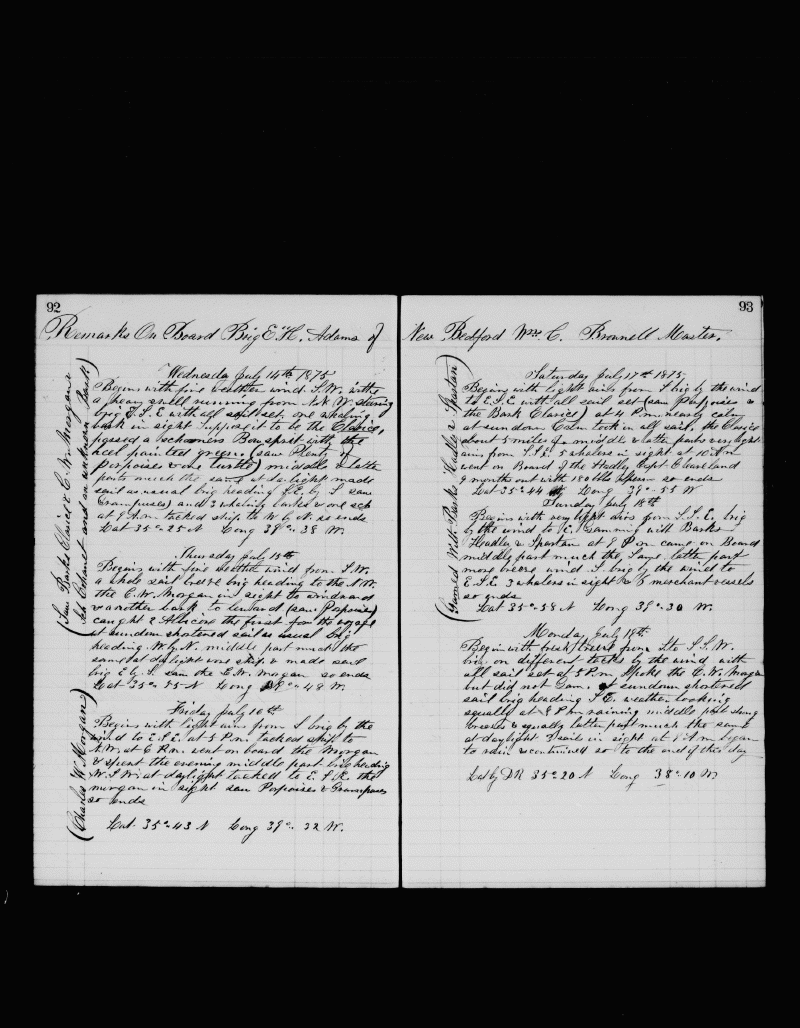 92
Remarks On Board Brig E. H. Adams of
(Saw Barks Clarice & C. W. Morgan
Sch Cohanet and an unknown Bark)
Wednesday July 14th 1875
Begins with fine weather wind S.W. with
a heavy swell running from N.N.W. steering
brig E.S.E. with all sail set. one whaling
bark in sight suppose it to be the Clarice,
passed a schooners Bowsprit with the
heel painted green. (saw Plenty of
Porpoises & one turtle) middle & latter
parts much the same at daylight made
sail as usual brig heading S.E. by S saw
Grampuses) and 3 whaling barks & one sch
at 8 A.m. tacked ship to W by N. so ends
Lat 35°-25 N Long 39°-38 W.
Thursday July 15th
Begins with fine weather wind from S.W.
a whole sail breeze brig heading to the N.W.
the C.W. Morgan in sight to windward
& another bark to leward (saw Porpoises)
caught 2 Albicore the first for the voyage
at sundown shortened sail as usual brig
heading N.by N. middle part much the
same at daylight wore ship & made sail
brig E by S. saw the C.W. Morgan so ends
Lat 35°-55 N Long 48 W.
(Charles W. Morgan)
Friday July 16th
Begins with light airs from S brig by the
wind to E.S.E. at 3 P.m. tacked ship to
N.W. at 6 P.m. went on board the Morgan
& spent the evening middle part brig heading
W.S.W. at daylight tacked to E.S.E. the
morgan in sight saw Porpoises & Grampuses
so ends
Lat 35°-43 N Long 39°-32 W.
93
New Bedford Wm C. Brownell Master.
(Gamed With Barks Hadley & Spartan)
Saturday July 17th 1875
Begins with light airs from S brig by the wind
to E.S.E with all sail set (saw Porpoises &
the Bark Clarice) at 4 P.m. nearly calm
at sundown Calm took in all sail. the Clarice
about 5 miles of. middle & latter parts very light
airs from S.S.E. 5 whalers in sight at 10 A.m
went on Board of the Hadley Capt Cleaveland
months out with 180 bbls Sperm so ends
Lat 35°-44 N Long 39°-55 W
Sunday July 18th
Begins with very light airs from S.S.E. brig
by the wind to E. Gamming with Barks
Hadley & Spartan at 8 P.m. came on Board
middle part much the Same latter part
more breeze wind S. brig by the wind to
E.S.E. 3 whalers in sight & 5 merchant vessels
so ends
Lat 35°-58 N Long 39°-30 W.
Monday July 19th
Begins with fresh breeze from S to S.S.W.
brig on different tacks by the wind with
all sail set at 5 P.m. Spoke the C. W. Morgan
but did not Gam. at sundown shortened
sail brig heading S.E. weather looking
squally at 8 P.m raining middle part strong
breeze & squally latter part much the same
at daylight 3 sails in sight at 8 A.m began
to rain & continued so to the end of this day
Lat by DR 35°-20 N Long 38°-10 W